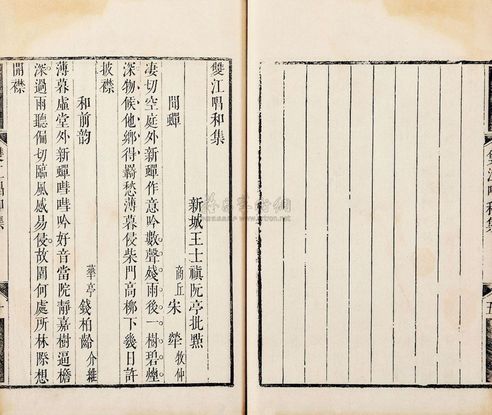 雙江唱和集
新城王士禛阮亭批點
商丘宋犖牧仲
聞蟬
凄切空庭外新蟬作意吟數聲殘雨後一樹碧煙
深物候他鄉得羈愁薄暮侵柴門高柳下幾日許
披襟
和前韵
華亭錢柏齡介維
薄暮虛堂外新蟬嘒嘒吟好音當院靜嘉樹逼檐
深過雨聽偏切臨風感易侵故園何處所林際想
開襟
雙江唱和集